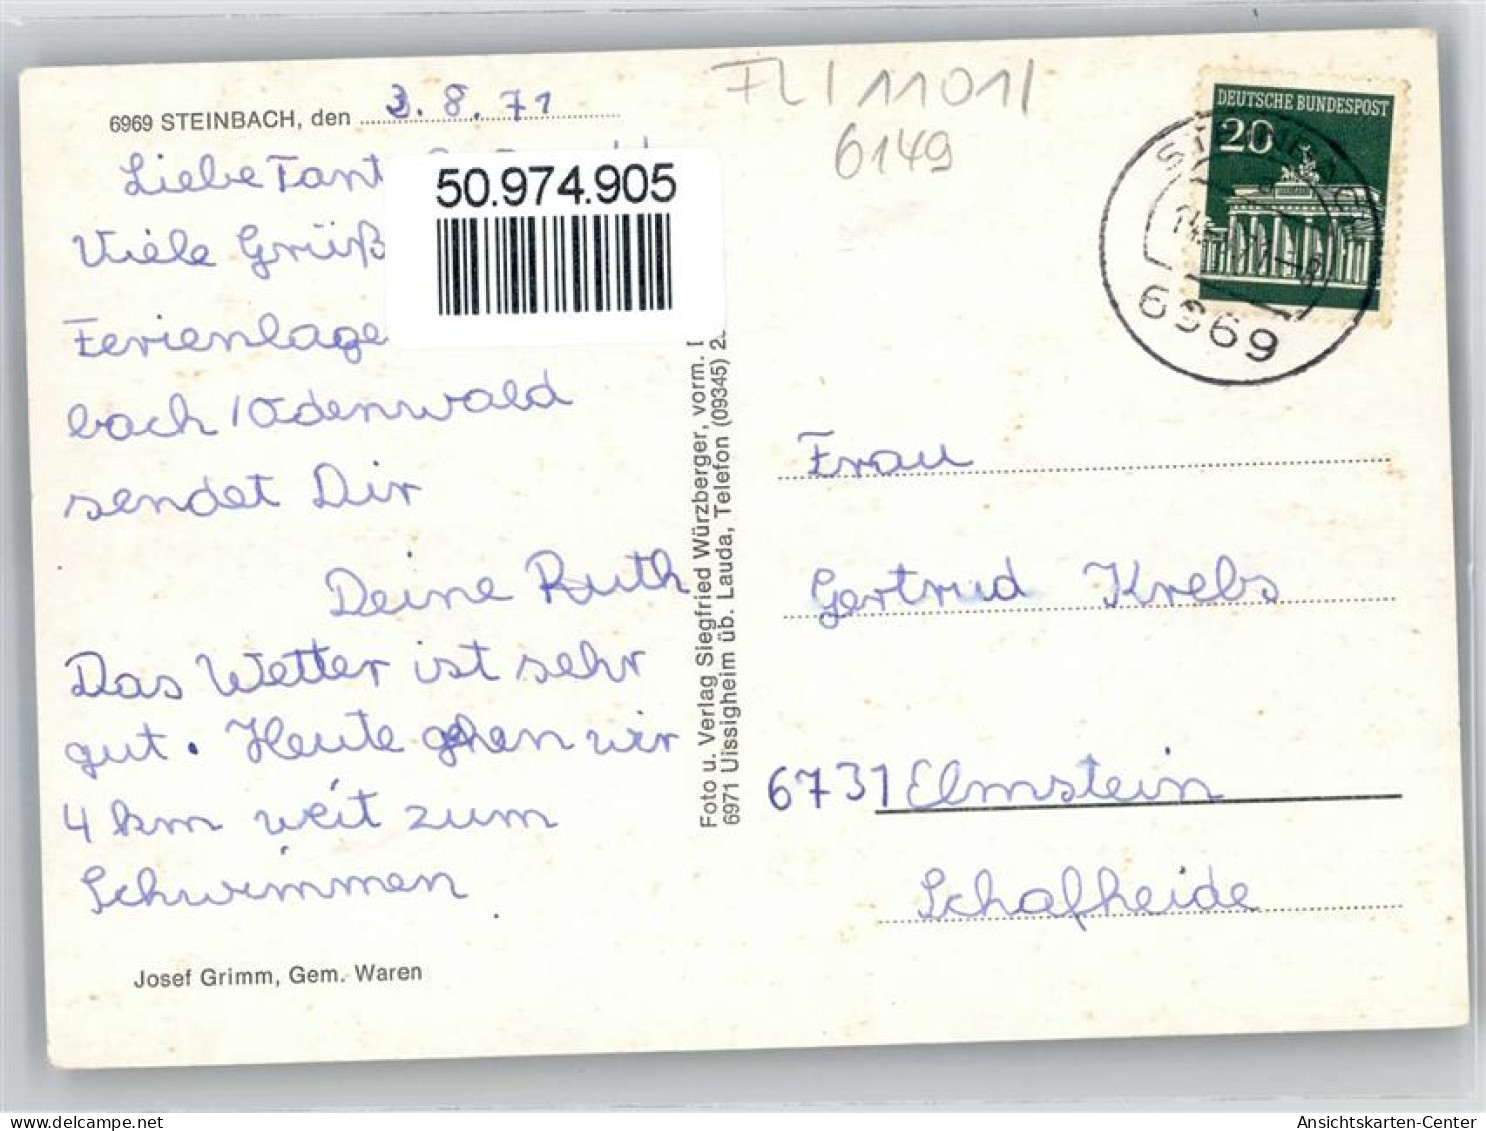 6969 STEINBACH, den 3.8.71
Liebe Tant
Viele Grüß
Ferienlage
bach/Odenwald
sendet Dir
Deine Ruth
Das Wetter ist sehr
gut. Heute gehen wir
4 km weit zum
Schwimmen.
Josef Grimm, Gem. Waren
50.974.905
Foto u. Verlag Siegfried Würzberger, vorm.
6971 Uissigheim üb. Lauda, Telefon (09345) 2
11011
6149
DEUTSCHE BUNDESPOST
20
STEINBACH
6969
Frau
Gertrud Krebs
6731 Elmstein
Schafheide
Ansichtskarten-Center